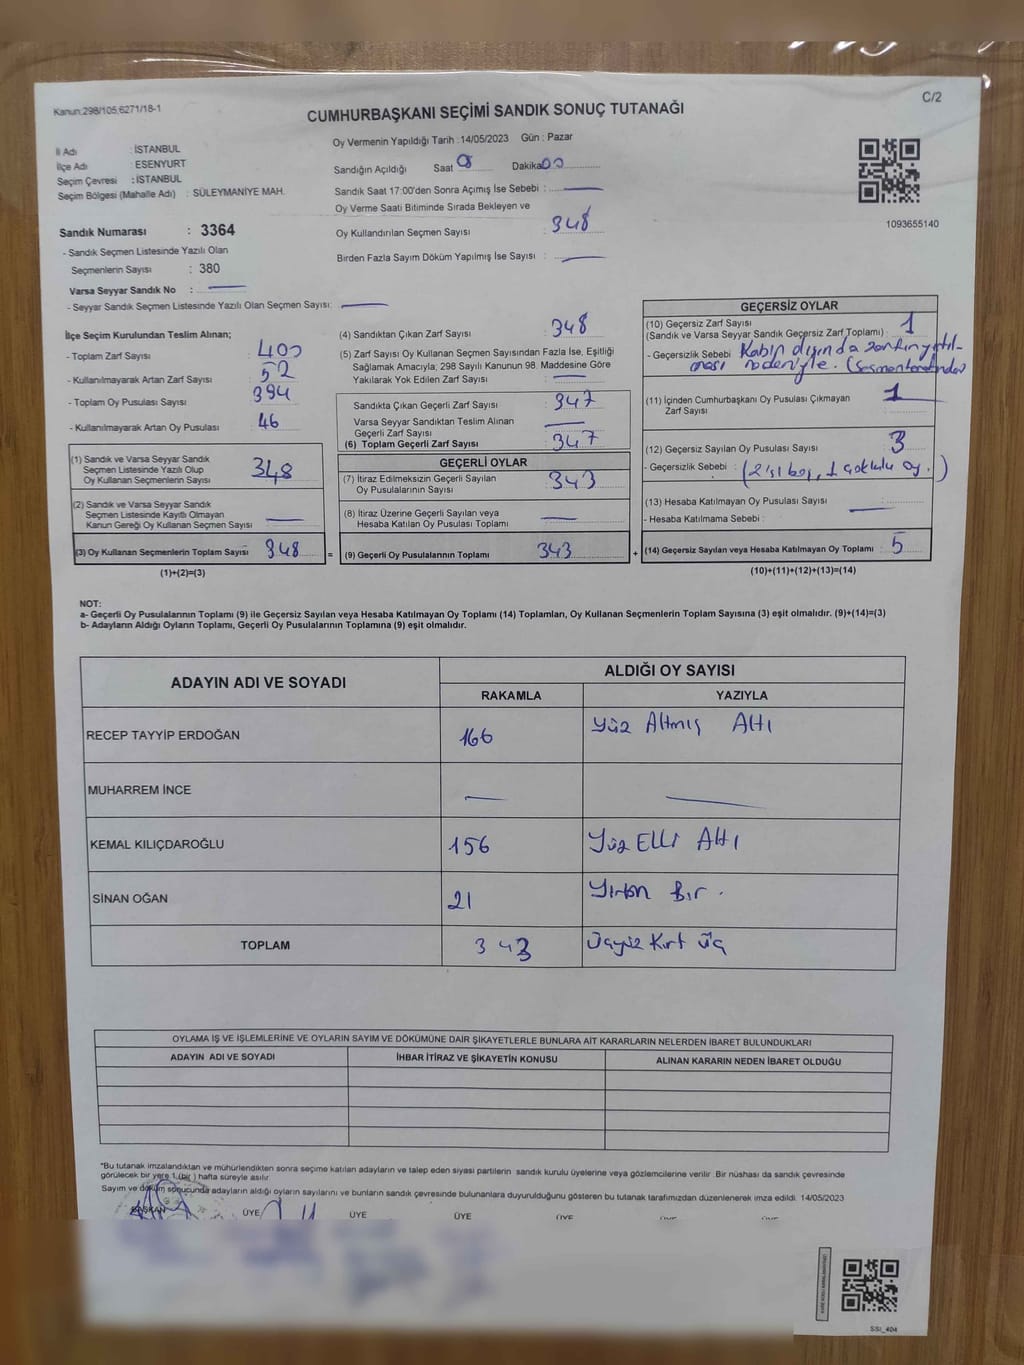 Kanun:298/105,6271/18-1
C/2
CUMHURBAŞKANI SEÇİMİ SANDIK SONUÇ TUTANAĞI
Oy Vermenin Yapıldığı Tarih :14/05/2023 Gün : Pazar
İl Adı : İSTANBUL
İlçe Adı : ESENYURT
Seçim Çevresi : İSTANBUL
Seçim Bölgesi (Mahalle Adı) : SÜLEYMANİYE MAH.
Sandığın Açıldığı Saat 8 Dakika 00
Sandık Saat 17:00'den Sonra Açımış İse Sebebi : —
Oy Verme Saati Bitiminde Sırada Bekleyen ve
Oy Kullandırılan Seçmen Sayısı : 348
Birden Fazla Sayım Döküm Yapılmış İse Sayısı : —
1093655140
Sandık Numarası : 3364
- Sandık Seçmen Listesinde Yazılı Olan
Seçmenlerin Sayısı : 380
Varsa Seyyar Sandık No : —
- Seyyar Sandık Seçmen Listesinde Yazılı Olan Seçmen Sayısı: —
İlçe Seçim Kurulundan Teslim Alınan;
- Toplam Zarf Sayısı : 400
- Kullanılmayarak Artan Zarf Sayısı : 52
- Toplam Oy Pusulası Sayısı : 394
- Kullanılmayarak Artan Oy Pusulası : 46
(1) Sandık ve Varsa Seyyar Sandık
Seçmen Listesinde Yazılı Olup
Oy Kullanan Seçmenlerin Sayısı : 348
(2) Sandık ve Varsa Seyyar Sandık
Seçmen Listesinde Kayıtlı Olmayan
Kanun Gereği Oy Kullanan Seçmen Sayısı : —
(3) Oy Kullanan Seçmenlerin Toplam Sayısı : 348 =
(1)+(2)=(3)
(4) Sandıktan Çıkan Zarf Sayısı : 348
(5) Zarf Sayısı Oy Kullanan Seçmen Sayısından Fazla İse, Eşitliği
Sağlamak Amacıyla; 298 Sayılı Kanunun 98. Maddesine Göre
Yakılarak Yok Edilen Zarf Sayısı : —
Sandıkta Çıkan Geçerli Zarf Sayısı : 347
Varsa Seyyar Sandıktan Teslim Alınan
Geçerli Zarf Sayısı : —
(6) Toplam Geçerli Zarf Sayısı : 347
GEÇERLİ OYLAR
(7) İtiraz Edilmeksizin Geçerli Sayılan
Oy Pusulalarının Sayısı : 343
(8) İtiraz Üzerine Geçerli Sayılan veya
Hesaba Katılan Oy Pusulası Toplamı : —
(9) Geçerli Oy Pusulalarının Toplamı : 343 +
GEÇERSİZ OYLAR
(10) Geçersiz Zarf Sayısı
(Sandık ve Varsa Seyyar Sandık Geçersiz Zarf Toplamı) : 1
- Geçersizlik Sebebi : Kabin dışında zarfın yatıl-
ması nedeniyle.
(11) İçinden Cumhurbaşkanı Oy Pusulası Çıkmayan
Zarf Sayısı : 1
(12) Geçersiz Sayılan Oy Pusulası Sayısı : 3
- Geçersizlik Sebebi : (2'si boş, 1 çoklulu oy.)
(13) Hesaba Katılmayan Oy Pusulası Sayısı : —
- Hesaba Katılmama Sebebi :
(14) Geçersiz Sayılan veya Hesaba Katılmayan Oy Toplamı : 5
(10)+(11)+(12)+(13)=(14)
NOT:
a- Geçerli Oy Pusulalarının Toplamı (9) ile Geçersiz Sayılan veya Hesaba Katılmayan Oy Toplamı (14) Toplamları, Oy Kullanan Seçmenlerin Toplam Sayısına (3) eşit olmalıdır. (9)+(14)=(3)
b- Adayların Aldığı Oyların Toplamı, Geçerli Oy Pusulalarının Toplamına (9) eşit olmalıdır.
ADAYIN ADI VE SOYADI
ALDIĞI OY SAYISI
RAKAMLA YAZIYLA
RECEP TAYYİP ERDOĞAN 166 Yüz Altmış Altı
MUHARREM İNCE — —
KEMAL KILIÇDAROĞLU 156 Yüz Elli Altı
SİNAN OĞAN 21 Yirmi Bir.
TOPLAM 343 Üçyüz Kırk Üç
OYLAMA İŞ VE İŞLEMLERİNE VE OYLARIN SAYIM VE DÖKÜMÜNE DAİR ŞİKAYETLERLE BUNLARA AİT KARARLARIN NELERDEN İBARET BULUNDUKLARI
ADAYIN ADI VE SOYADI İHBAR İTİRAZ VE ŞİKAYETİN KONUSU ALINAN KARARIN NEDEN İBARET OLDUĞU
*Bu tutanak imzalandıktan ve mühürlendikten sonra seçime katılan adayların ve talep eden siyasi partilerin sandık kurulu üyelerine veya gözlemcilerine verilir. Bir nüshası da sandık çevresinde
görülecek bir yere 1 (bir) hafta süreyle asılır.
Sayım ve döküm sonucunda adayların aldığı oyların sayılarını ve bunların sandık çevresinde bulunanlara duyurulduğunu gösteren bu tutanak tarafımızdan düzenlenerek imza edildi. 14/05/2023
BAŞKAN ÜYE ÜYE ÜYE ÜYE ÜYE ÜYE
SSI_404